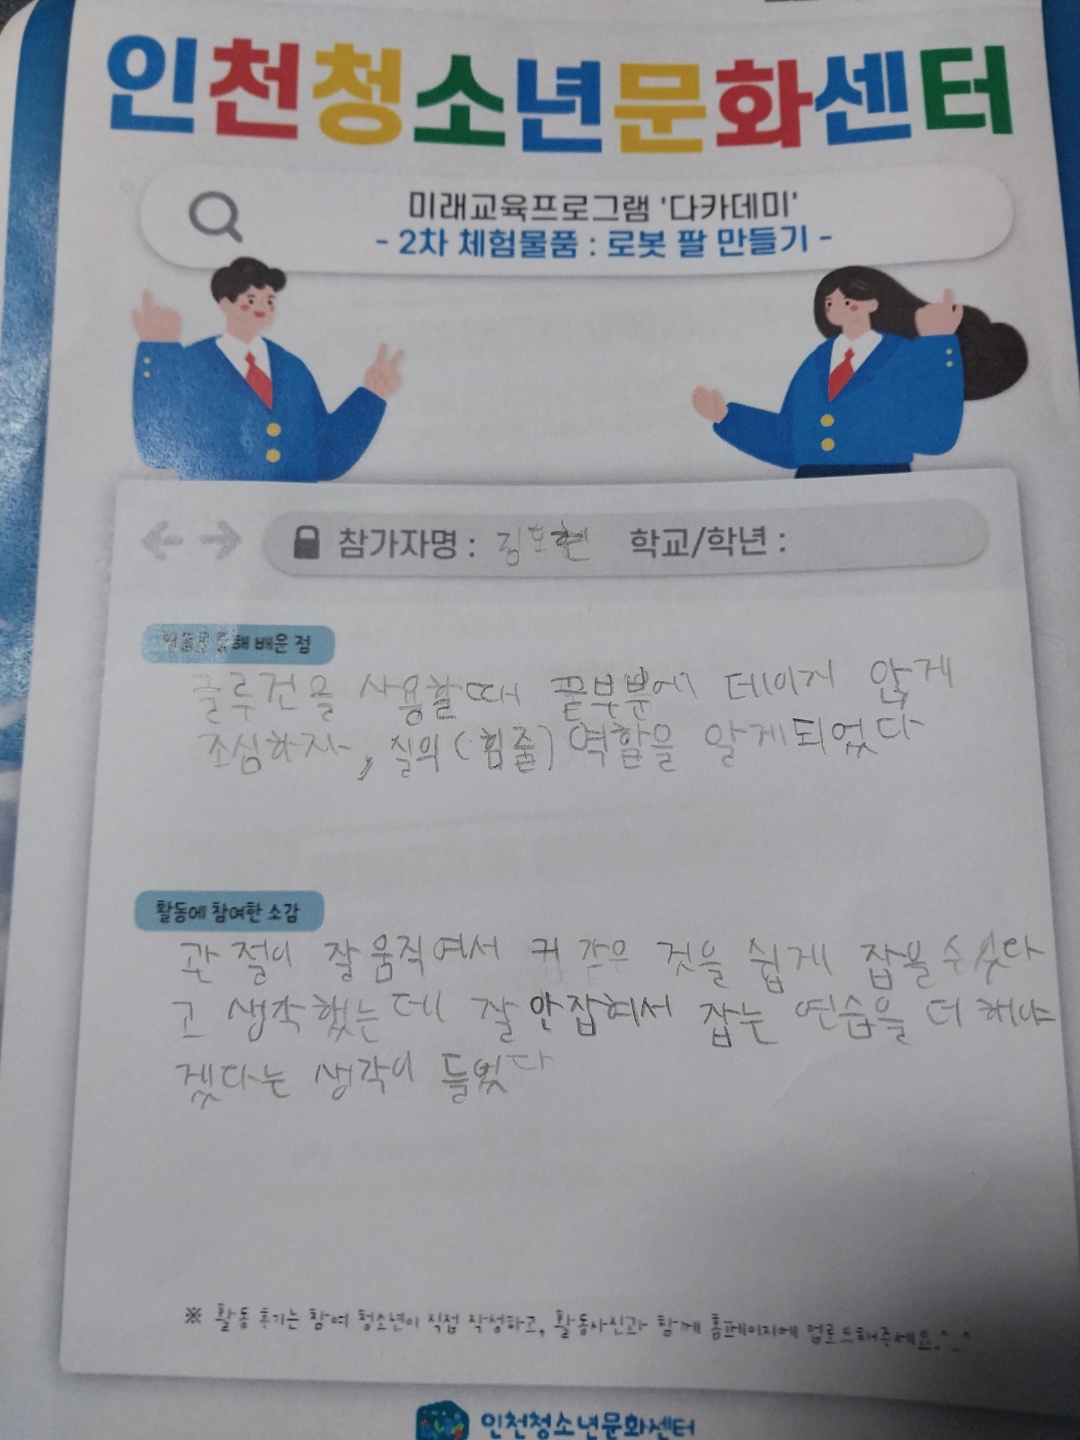 인천청소년문화센터
미래교육프로그램 '다카데미'
- 2차 체험물품 : 로봇 팔 만들기 -
참가자명 : 김도현 학교/학년 :
활동을 통해 배운 점
글루건을 사용할때 끝부분에 데이지 않게
조심하자, 실의 (힘줄) 역할을 알게되었다
활동에 참여한 소감
관절이 잘 움직여서 커 같은 것을 쉽게 잡을 수 있다
고 생각했는데 잘 안잡혀서 잡는 연습을 더 해야
겠다는 생각이 들었다
※ 활동 후기는 참여 청소년이 직접 작성하고, 활동사진과 함께 홈페이지에 업로드해주세요.^_^
인천청소년문화센터